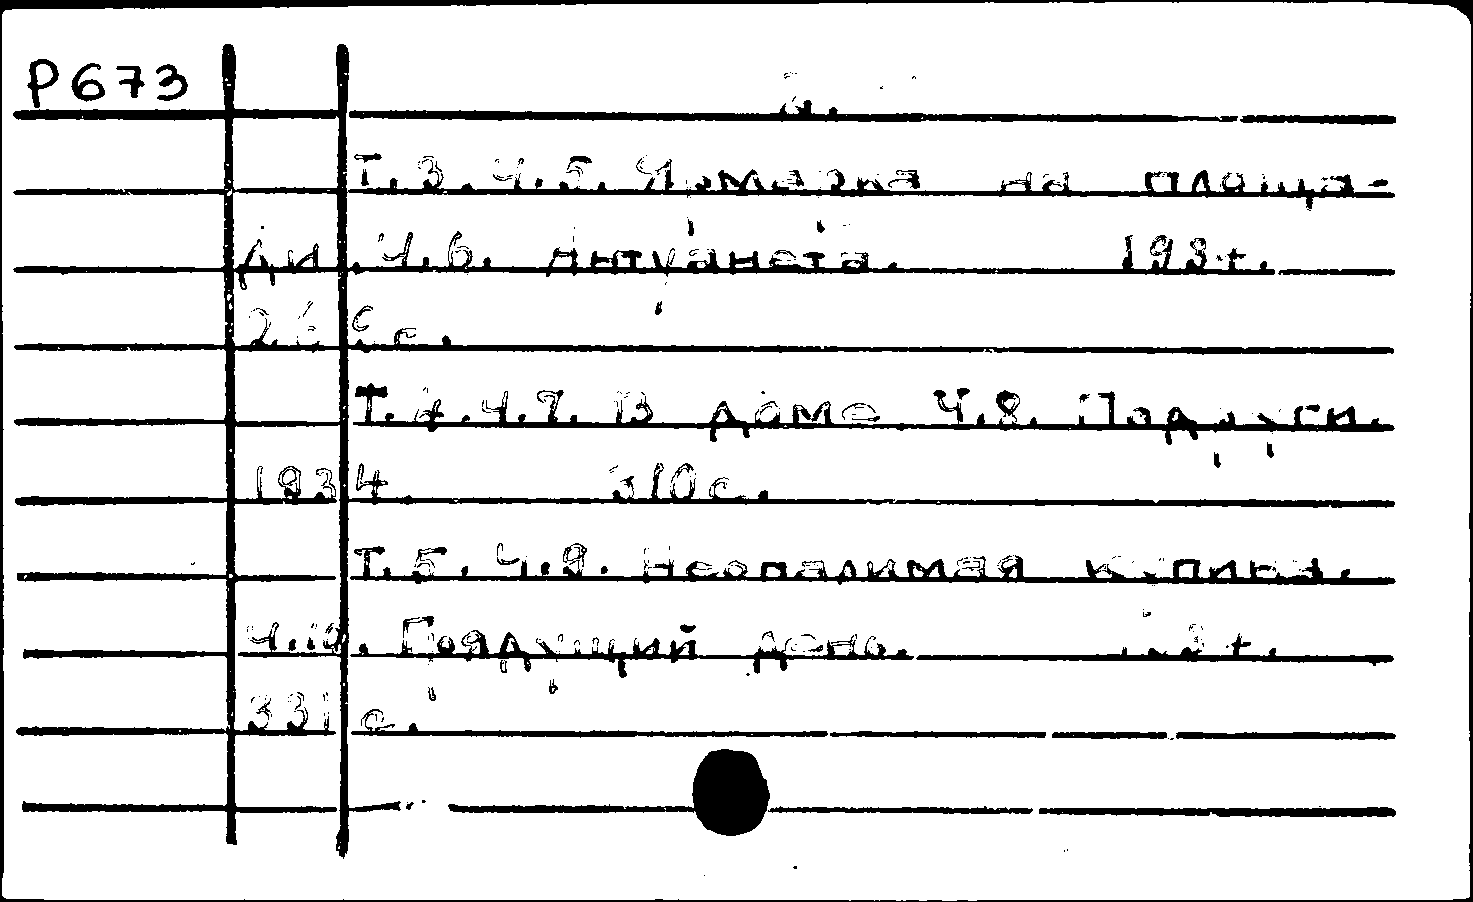 Р673
2.
Т.3.Ч.5. Ярмарка на площа-
ди.Ч.6. Антуанета. 1934.
266с.
Т.4.Ч.7. В доме. Ч.8. Подруги.
1934. 310с.
Т.5.Ч.9. Неопалимая купина.
Ч.10. Грядущий день. 1934.
331с.